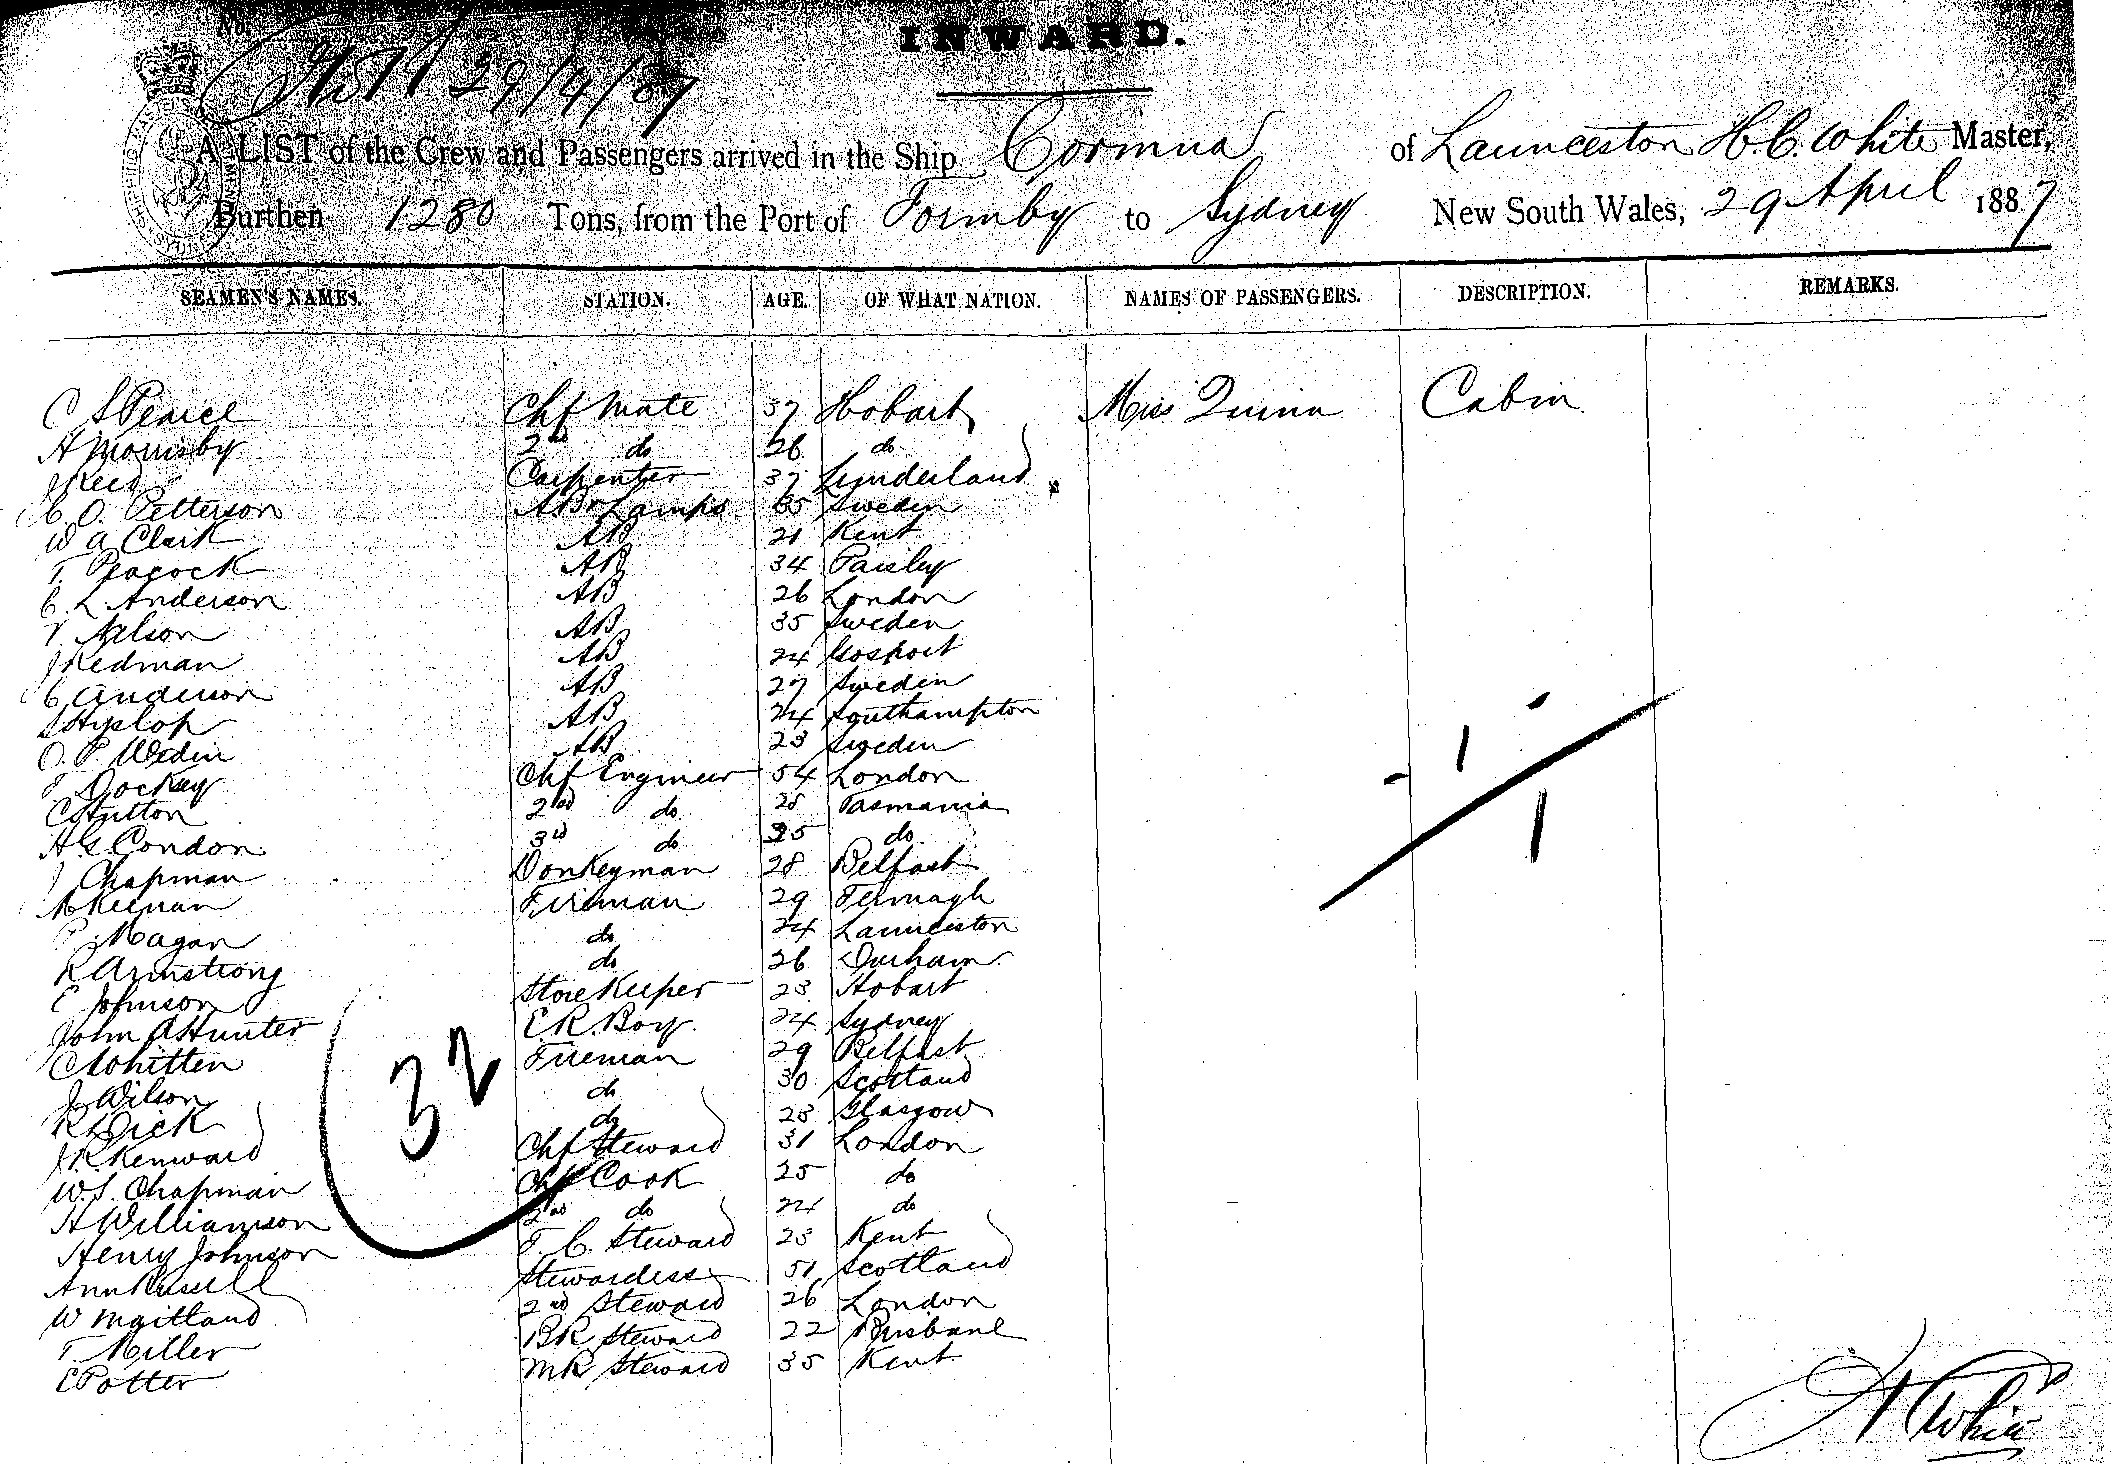 No.
INWARD.
29/4/87
A LIST of the Crew and Passengers arrived in the Ship Corinna of Launceston H.C. White Master,
Burthen 1280 Tons, from the Port of Formby to Sydney New South Wales, 29 April 1887
SEAMEN'S NAMES. STATION. AGE. OF WHAT NATION. NAMES OF PASSENGERS. DESCRIPTION. REMARKS.
C S Pearce Chf Mate 37 Hobart Miss Quinn Cabin
A Mornisby 2nd do 26 do
J Reid Carpenter 37 Sunderland
C. O. Petterson AB & Lamps 35 Sweden
W A Clark AB 21 Kent
T. Peacock AB 34 Paisley
C. L. Anderson AB 26 London
V Nelson AB 35 Sweden
J Redman AB 24 Gosport
C Anderson AB 27 Sweden
S Hyslop AB 24 Southampton
O. P. Wedin AB 23 Sweden
F Dockey Chf Engineer 54 London
C Sutton 2nd do 28 Tasmania
H G Condon 3rd do 25 do
J Chapman Donkeyman 28 Belfast
Keenan Fireman 29 Fermagh
P. Magan do 24 Launceston
R Armstrong do 26 Durham
E Johnson Storekeeper 23 Hobart
John A Hunter E. R. Boy 24 Sydney
C Whitten Fireman 29 Belfast
J Wilson do 30 Scotland
R Dick do 28 Glasgow
J R Kenward Chf Steward 31 London
W. S. Chapman Chf Cook 25 do
H Williamson 2nd do 24 do
Henry Johnson F. C. Steward 23 Kent
Ann Russell Stewardess 51 Scotland
W Maitland 2nd Steward 26 London
T Miller BR Steward 22 Brisbane
E Potter MR Steward 35 Kent
32
1
1
H C White